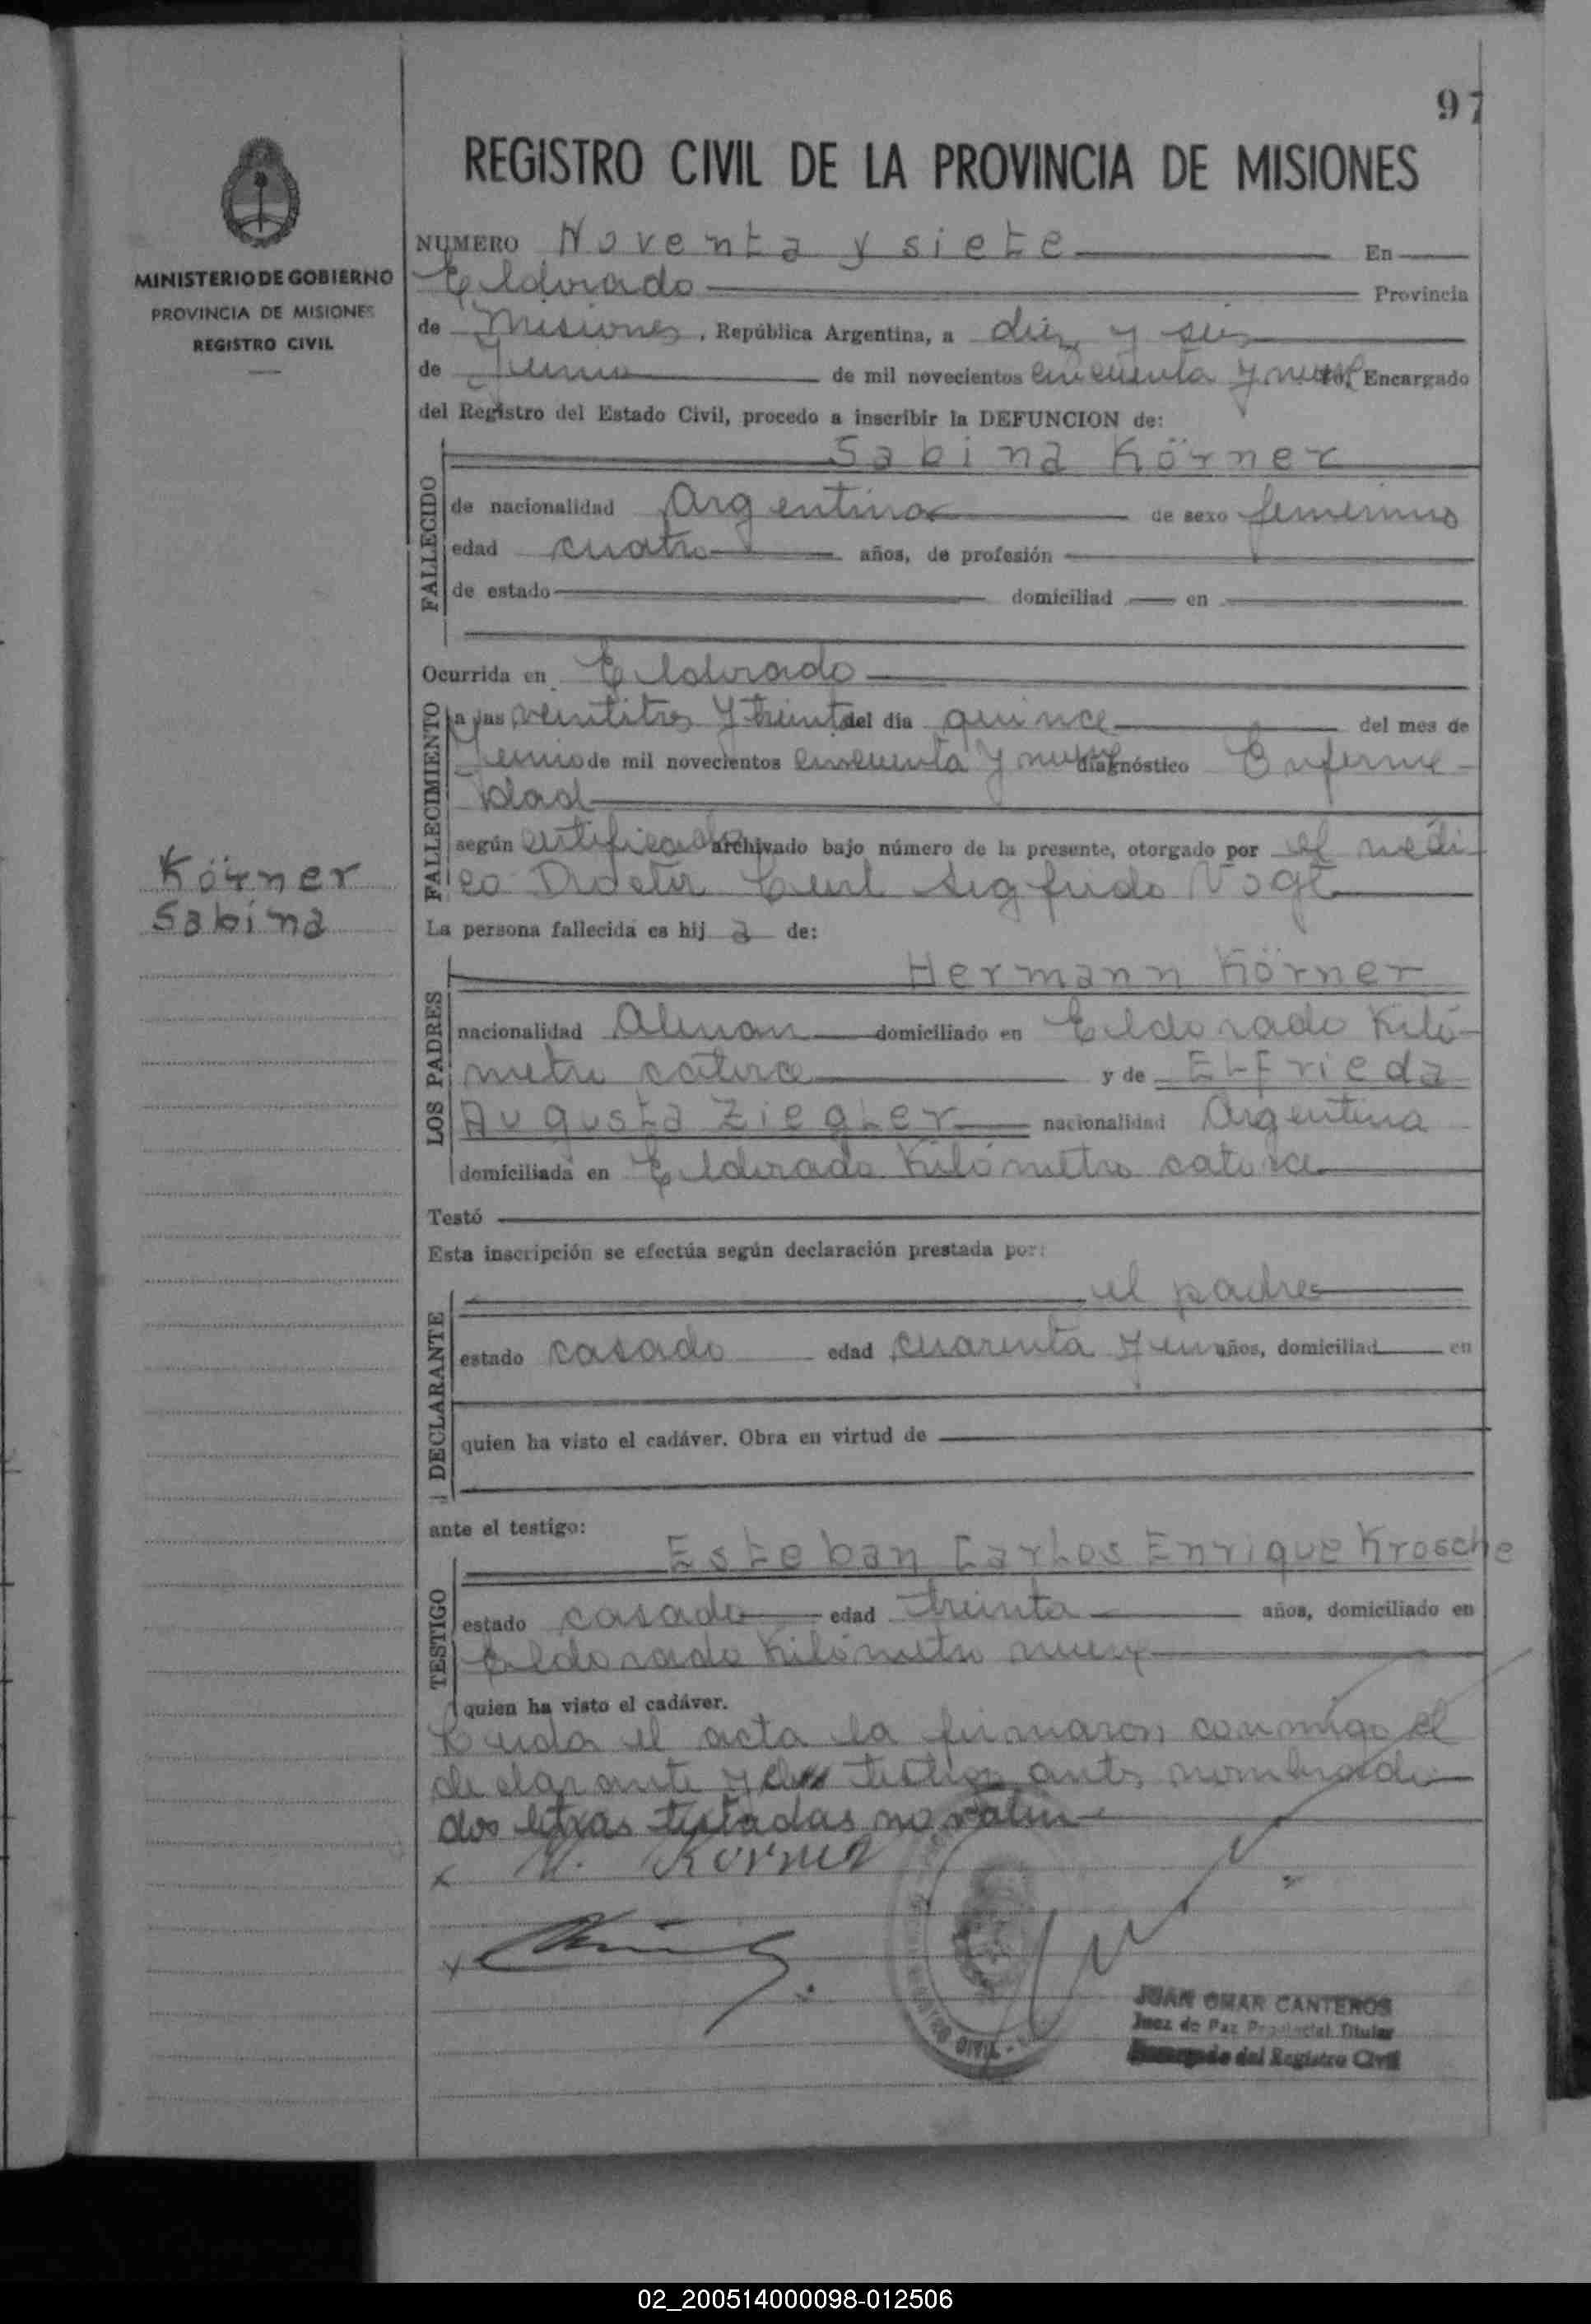 97
REGISTRO CIVIL DE LA PROVINCIA DE MISIONES
MINISTERIO DE GOBIERNO
PROVINCIA DE MISIONES
REGISTRO CIVIL
NUMERO Noventa y siete En
Eldorado Provincia
de Misiones, República Argentina, a diez y seis
de Junio de mil novecientos cincuenta y nueve Encargado
del Registro del Estado Civil, procedo a inscribir la DEFUNCION de:
FALLECIDO
Sabina Körner
de nacionalidad Argentina de sexo femenino
edad cuatro años, de profesión
de estado domiciliad en
Ocurrida en Eldorado
FALLECIMIENTO
a las veintitres y treinta del día quince del mes de
Junio de mil novecientos cincuenta y nueve diagnóstico Enferme-
dad
según certificado archivado bajo número de la presente, otorgado por el médi-
co Doctor Curt Sigfrido Vogt
Körner
Sabina
La persona fallecida es hij a de:
LOS PADRES
Hermann Körner
nacionalidad Aleman domiciliado en Eldorado Kiló-
metro catorce y de Elfrieda
Augusta Ziegler nacionalidad Argentina
domiciliada en Eldorado Kilómetro catorce
Testó
Esta inscripción se efectúa según declaración prestada por:
DECLARANTE
el padre
estado casado edad cuarenta y un años, domiciliad en
quien ha visto el cadáver. Obra en virtud de
ante el testigo:
TESTIGO
Esteban Carlos Enrique Krosche
estado casado edad treinta años, domiciliado en
Eldorado Kilómetro nueve
quien ha visto el cadáver.
Leida el acta la firmaron conmigo el
declarante y el testigo antes nombrado
dos letras testadas no valen
x H. Körner
x
JUAN OMAR CANTEROS
Juez de Paz Provincial Titular
Encargado del Registro Civil
02_200514000098-012506